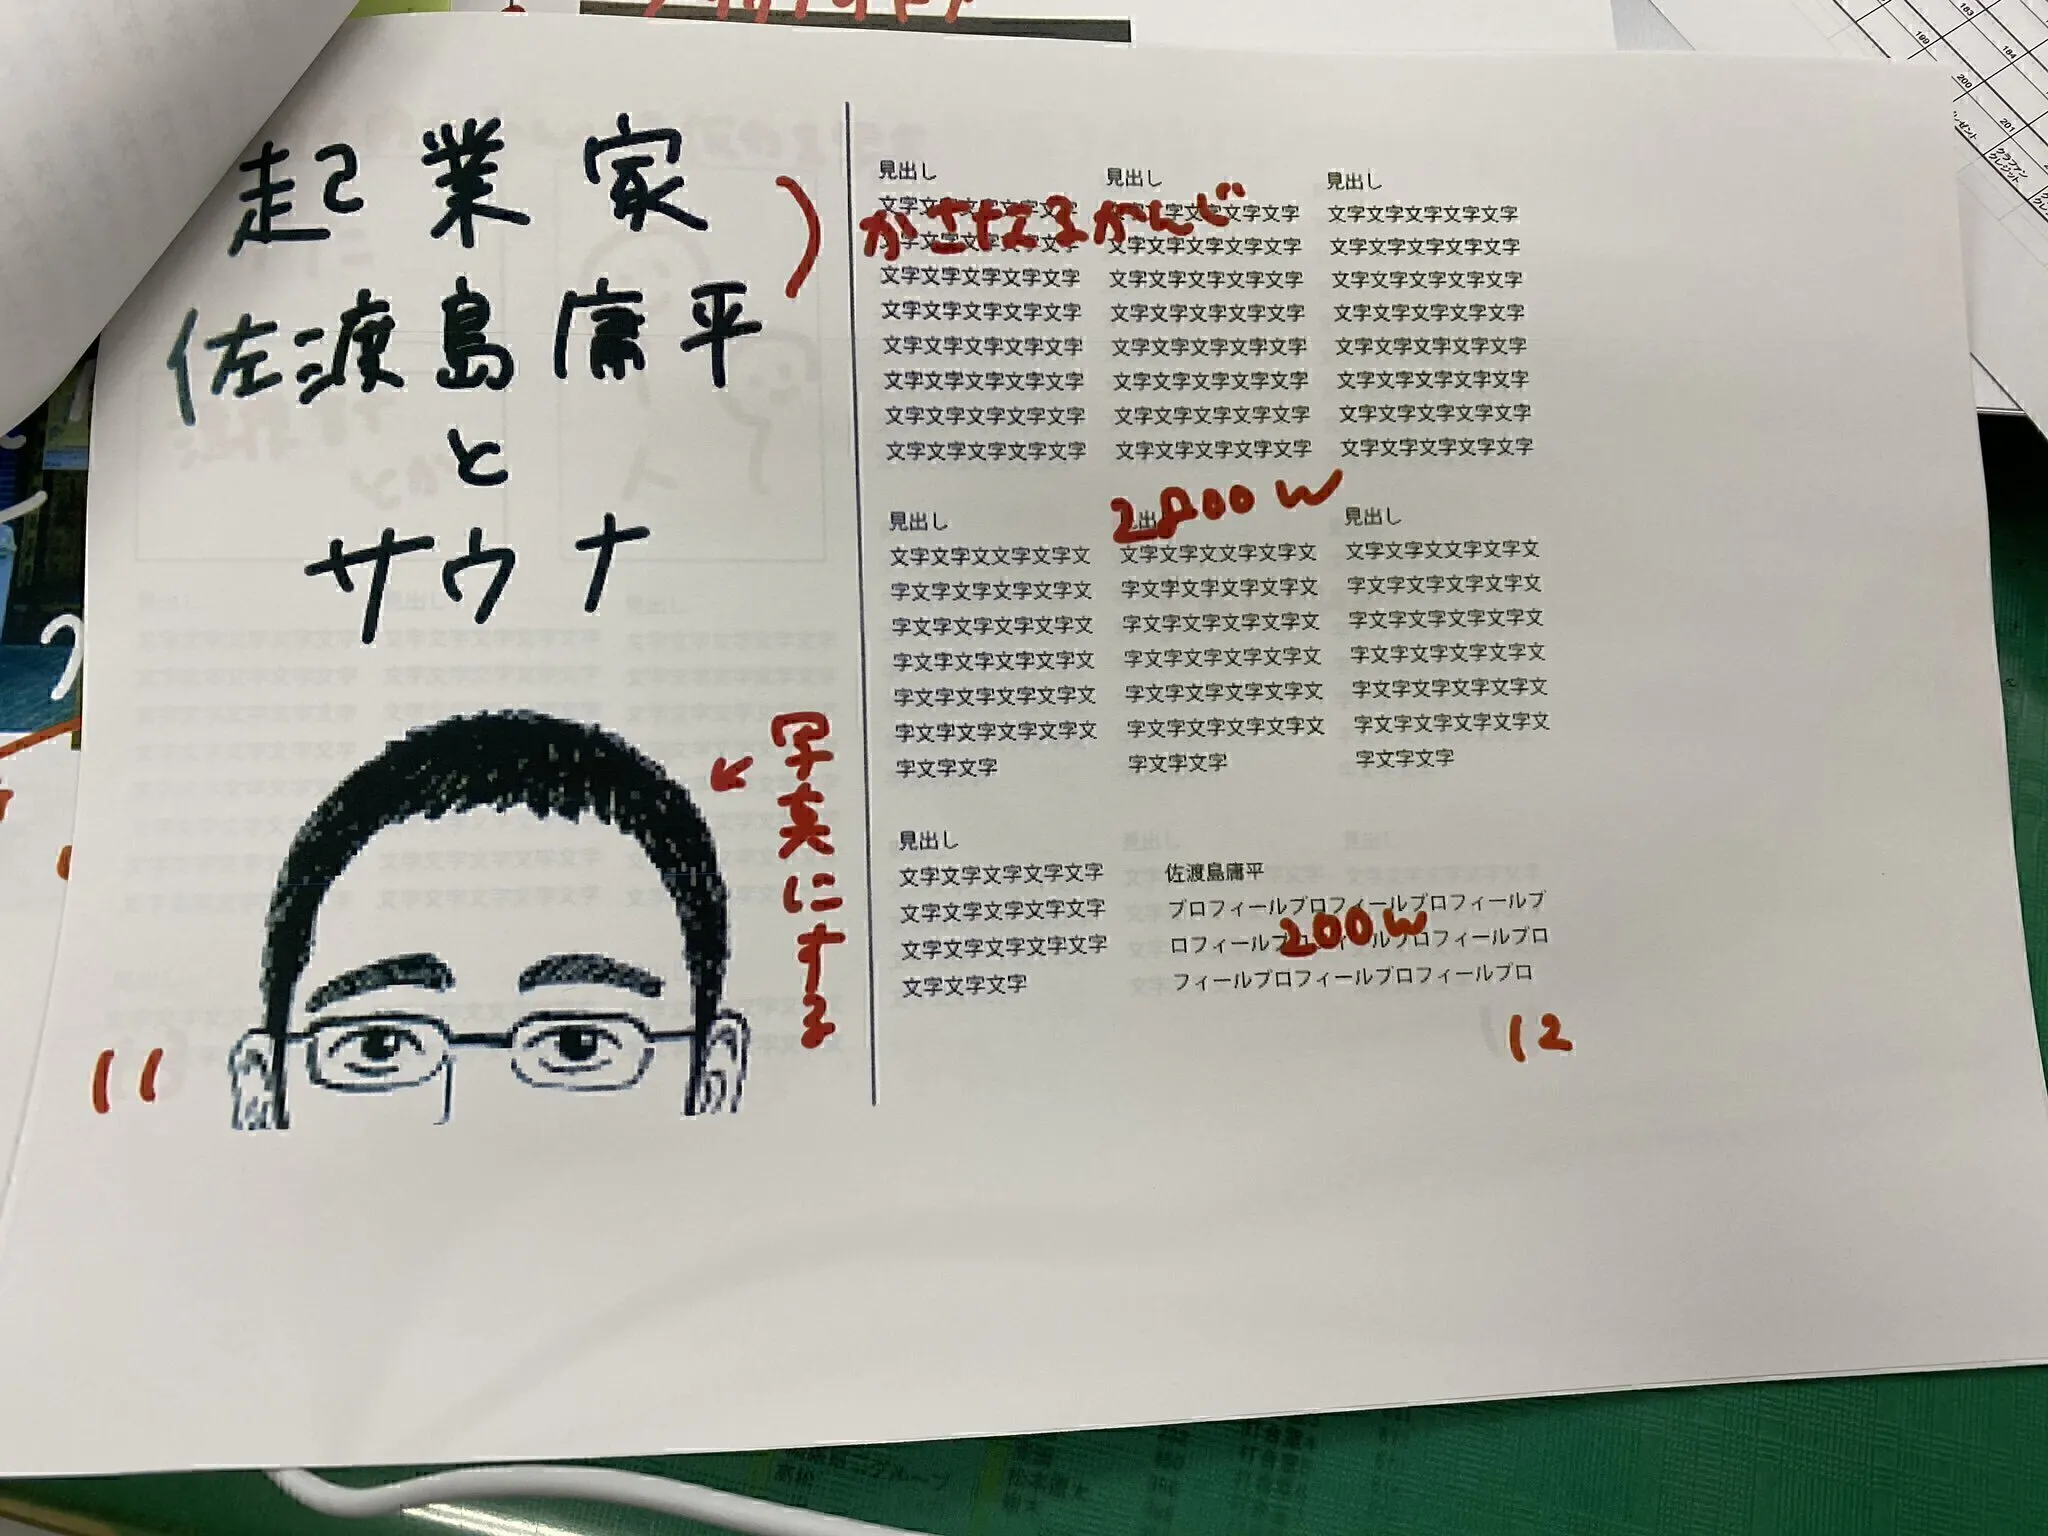 起業家
佐渡島庸平
と
サウナ
写真にする
11
見出し
文字文字文字文字文字
文字文字文字文字文字
文字文字文字文字文字
文字文字文字文字文字
文字文字文字文字文字
文字文字文字文字文字
文字文字文字文字文字
文字文字文字文字文字
見出し
文字文字文字文字文字
文字文字文字文字文字
文字文字文字文字文字
文字文字文字文字文字
文字文字文字文字文字
文字文字文字文字文字
文字文字文字文字文字
文字文字文字文字文字
見出し
文字文字文字文字文字
文字文字文字文字文字
文字文字文字文字文字
文字文字文字文字文字
文字文字文字文字文字
文字文字文字文字文字
文字文字文字文字文字
文字文字文字文字文字
2800w
見出し
文字文字文文字文字文
字文字文字文字文字文
字文字文字文字文字文
字文字文字文字文字文
字文字文字文字文字文
字文字文字文字文字文
字文字文字
見出し
文字文字文文字文字文
字文字文字文字文字文
字文字文字文字文字文
字文字文字文字文字文
字文字文字文字文字文
字文字文字文字文字文
字文字文字
見出し
文字文字文文字文字文
字文字文字文字文字文
字文字文字文字文字文
字文字文字文字文字文
字文字文字文字文字文
字文字文字文字文字文
字文字文字
見出し
文字文字文字文字文字
文字文字文字文字文字
文字文字文字文字文字
文字文字文字
佐渡島庸平
プロフィールプロフィールプロフィールプ
ロフィールプロフィールプロフィールプロ
フィールプロフィールプロフィールプロ
200w
12